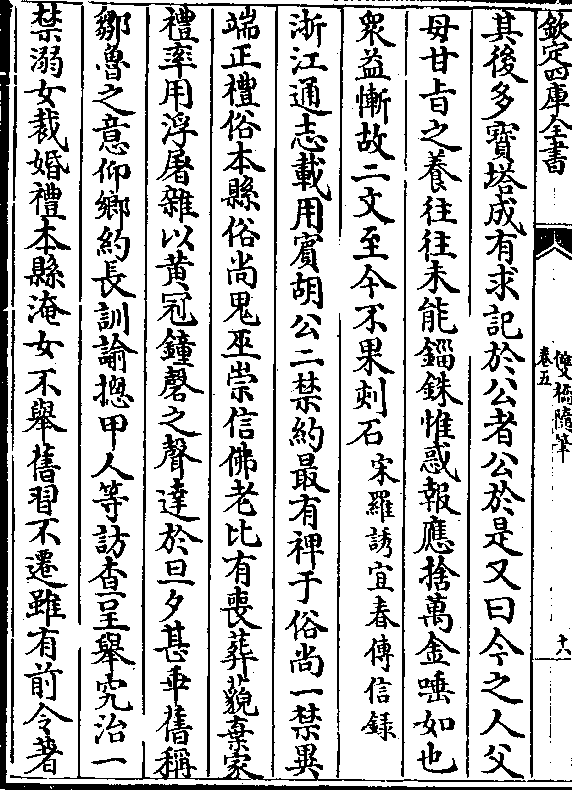 欽定四庫全書
雙橋隨筆
卷五
十六
其後多寶塔成有求記於公者公於是又曰今之人父
母甘㫖之養往往未能錙銖惟惑報應捨萬金唾如也
衆益慚故二文至今不果刻石宋羅誘宜春傳信録
浙江通志載用賓胡公二禁約最有禆于俗尚一禁異
端正禮俗本縣俗尚鬼巫崇信佛老比有喪葬藐棄家
禮率用浮屠雜以黄冠鐘磬之聲達於旦夕甚乖舊稱
鄒魯之意仰鄉約長訓諭摠甲人等訪查呈舉究治一
禁溺女裁婚禮本縣淹女不舉舊習不遷雖有前令著